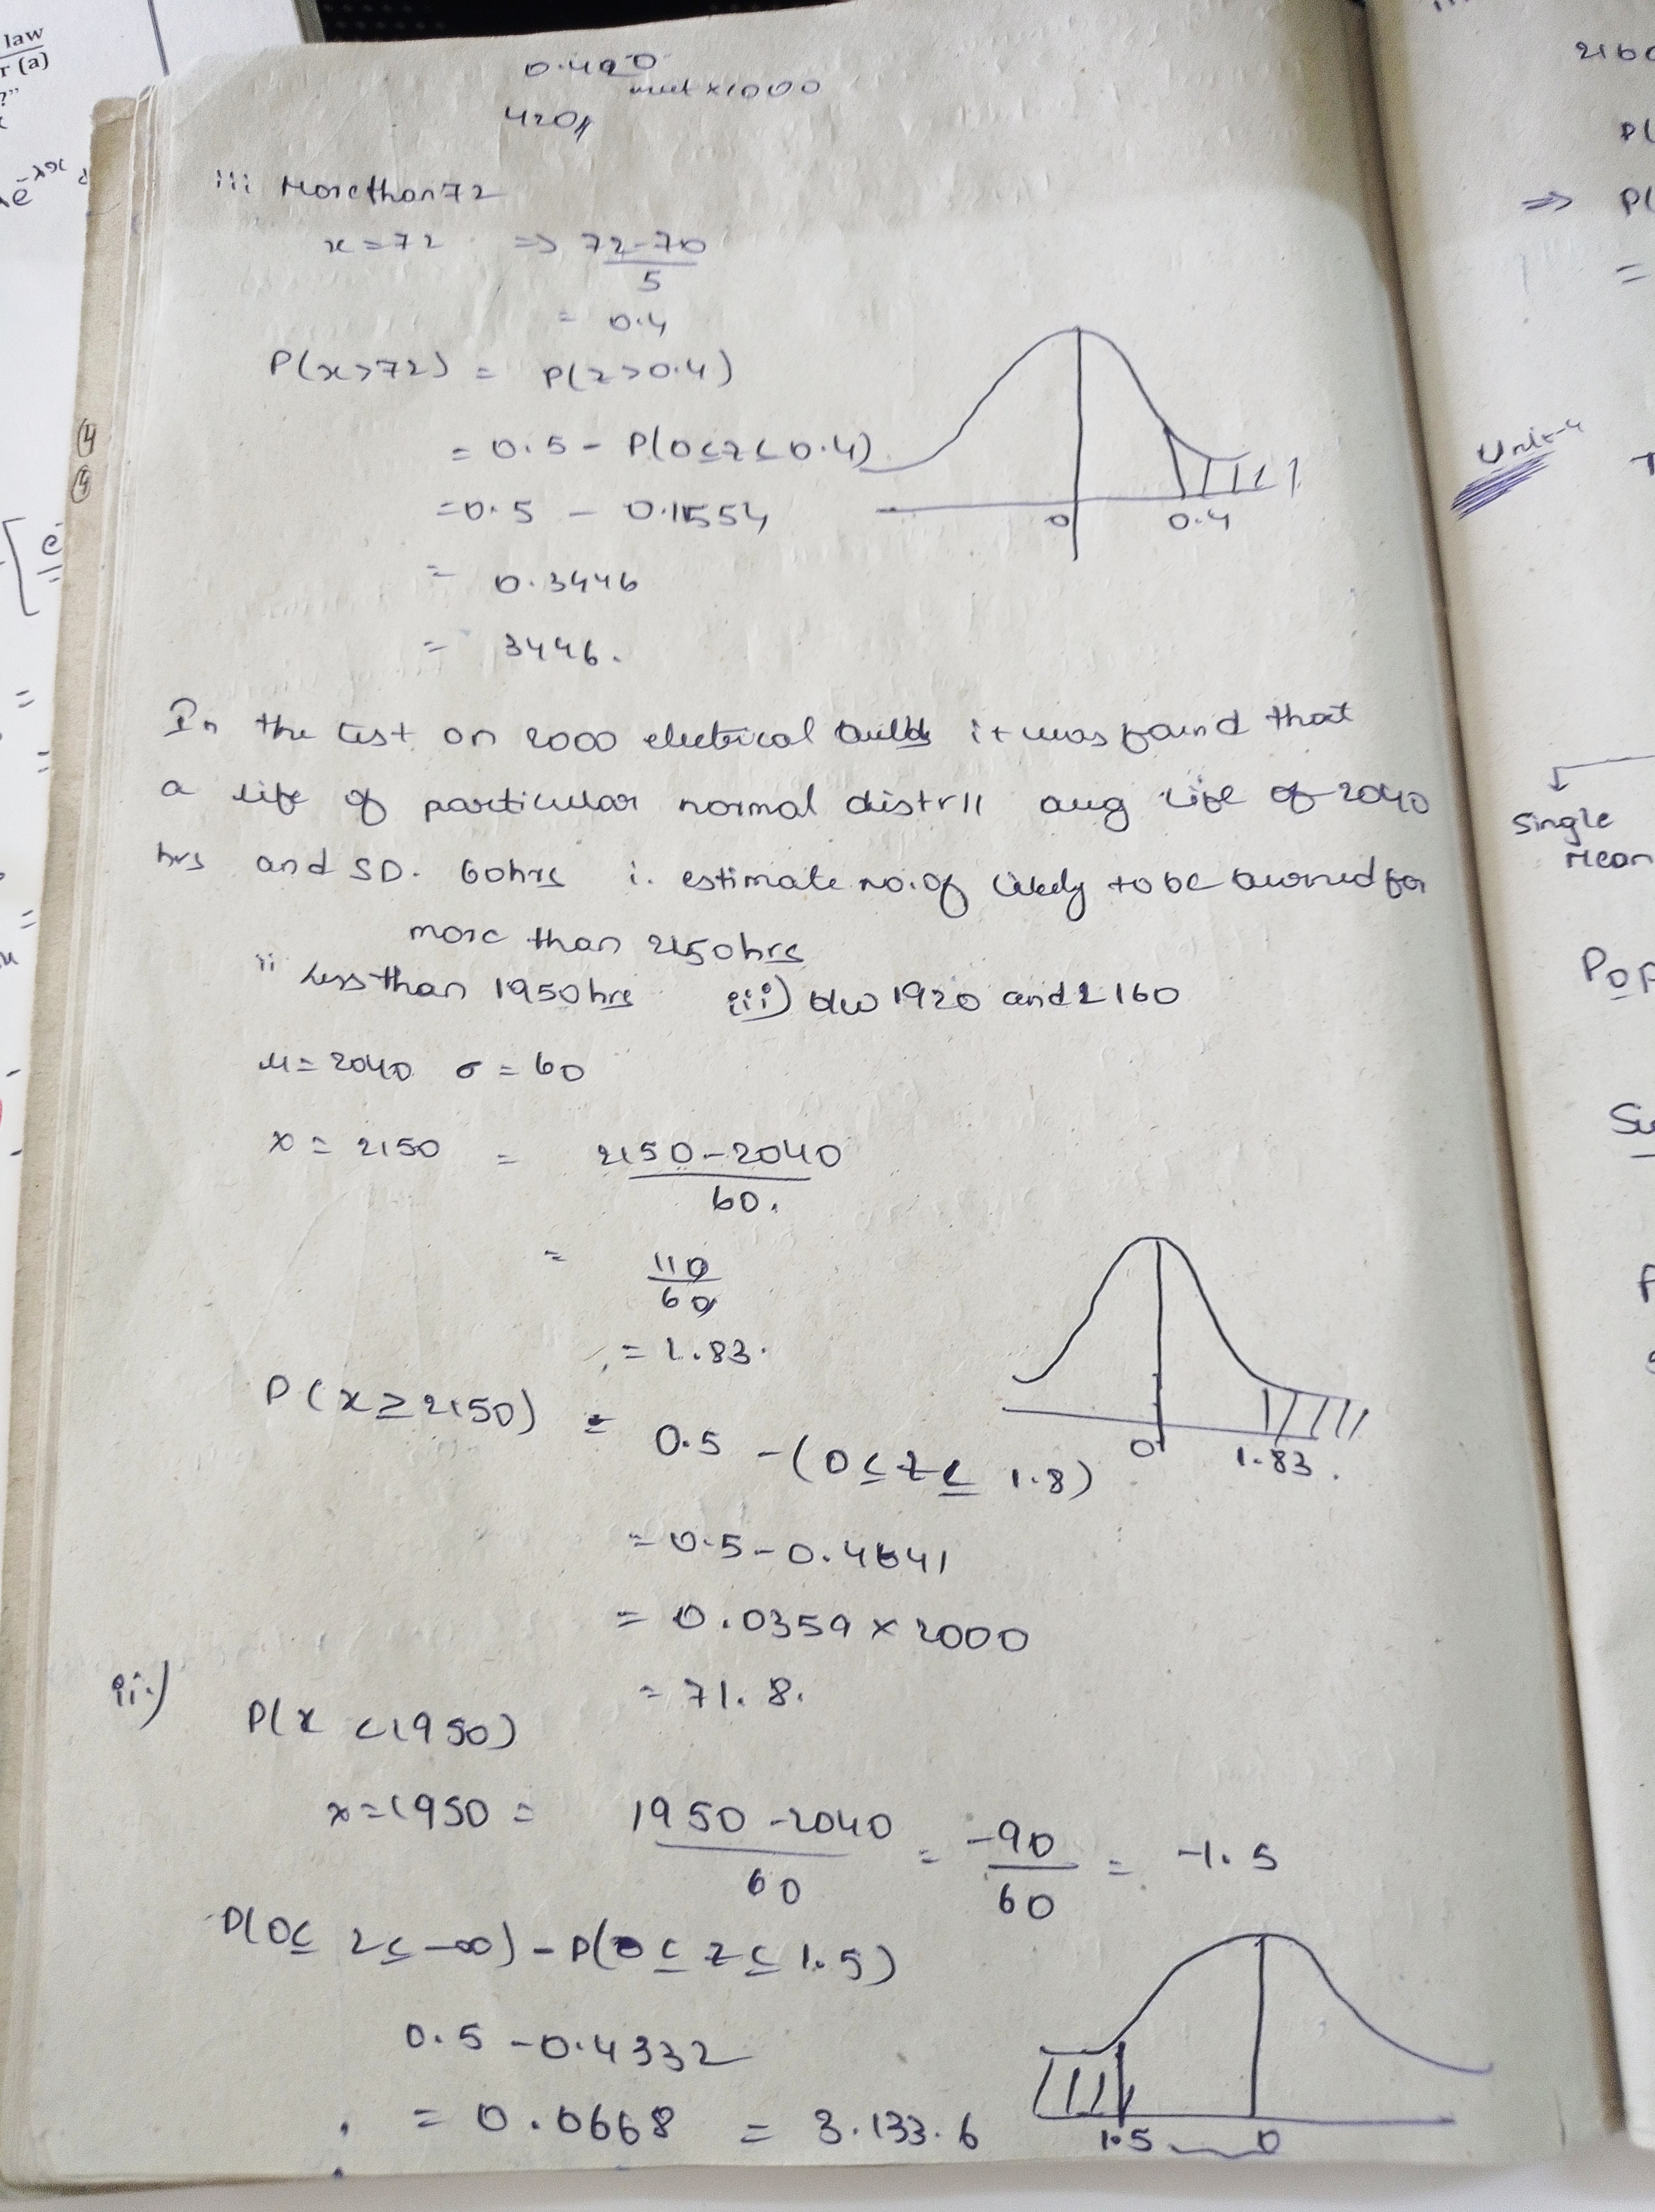 law
r (a)
?"
0.420
x1000
420
iii More than 72
x = 72 => 72-70
5
= 0.4
P(x>72) = P(z>0.4)
= 0.5 - P(0≤z≤0.4)
= 0.5 - 0.1554
= 0.3446
= 3446.
0 0.4
In the test on 2000 electrical bulbs it was found that
a life of particular normal distrll avg life of 2040
hrs and SD. 60hrs i. estimate no. of likely to be burned for
more than 2150hrs
ii less than 1950hrs iii) b/w 1920 and 2160
μ = 2040 σ = 60
x = 2150 = 2150-2040
60.
= 110
60
= 1.83.
P(x ≥ 2150) = 0.5 - (0≤z≤ 1.8)
0 1.83.
= 0.5 - 0.4641
= 0.0359 x 2000
= 71.8.
ii.)
P(x <1950)
x = 1950 = 1950-2040 = -90 = -1.5
60 60
P(0≤ z≤ -∞) - P(0≤ z≤ 1.5)
0.5 - 0.4332
= 0.0668 = 3.133.6
1.5 0
P(
=> P(
=
Unit-4
Single
Mean
Pop